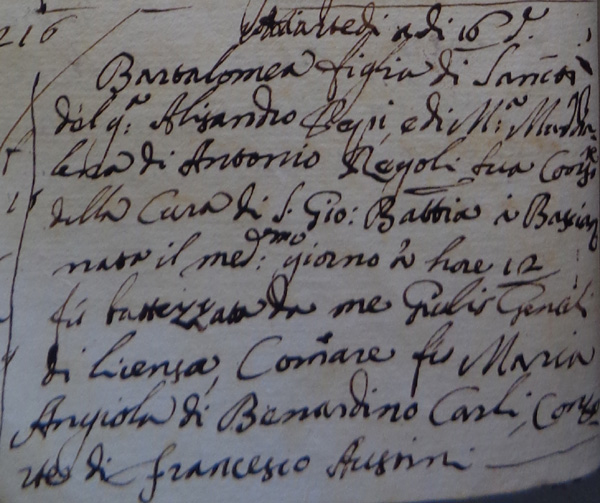 216 Martedi a di 16 d.º
Bartalomea figlia di Santi
del q.m Alisandro Pepi, e di M.a Madda
lena di Antonio Regoli sua Cons:
della Cura di S. Gio: Battia a
nata il med.mo giorno a hore 12
fù battezzata da me Giulio
di licenza, Comare fù Maria
Angiola di Benardino Carli, Conso
rte di Francesco